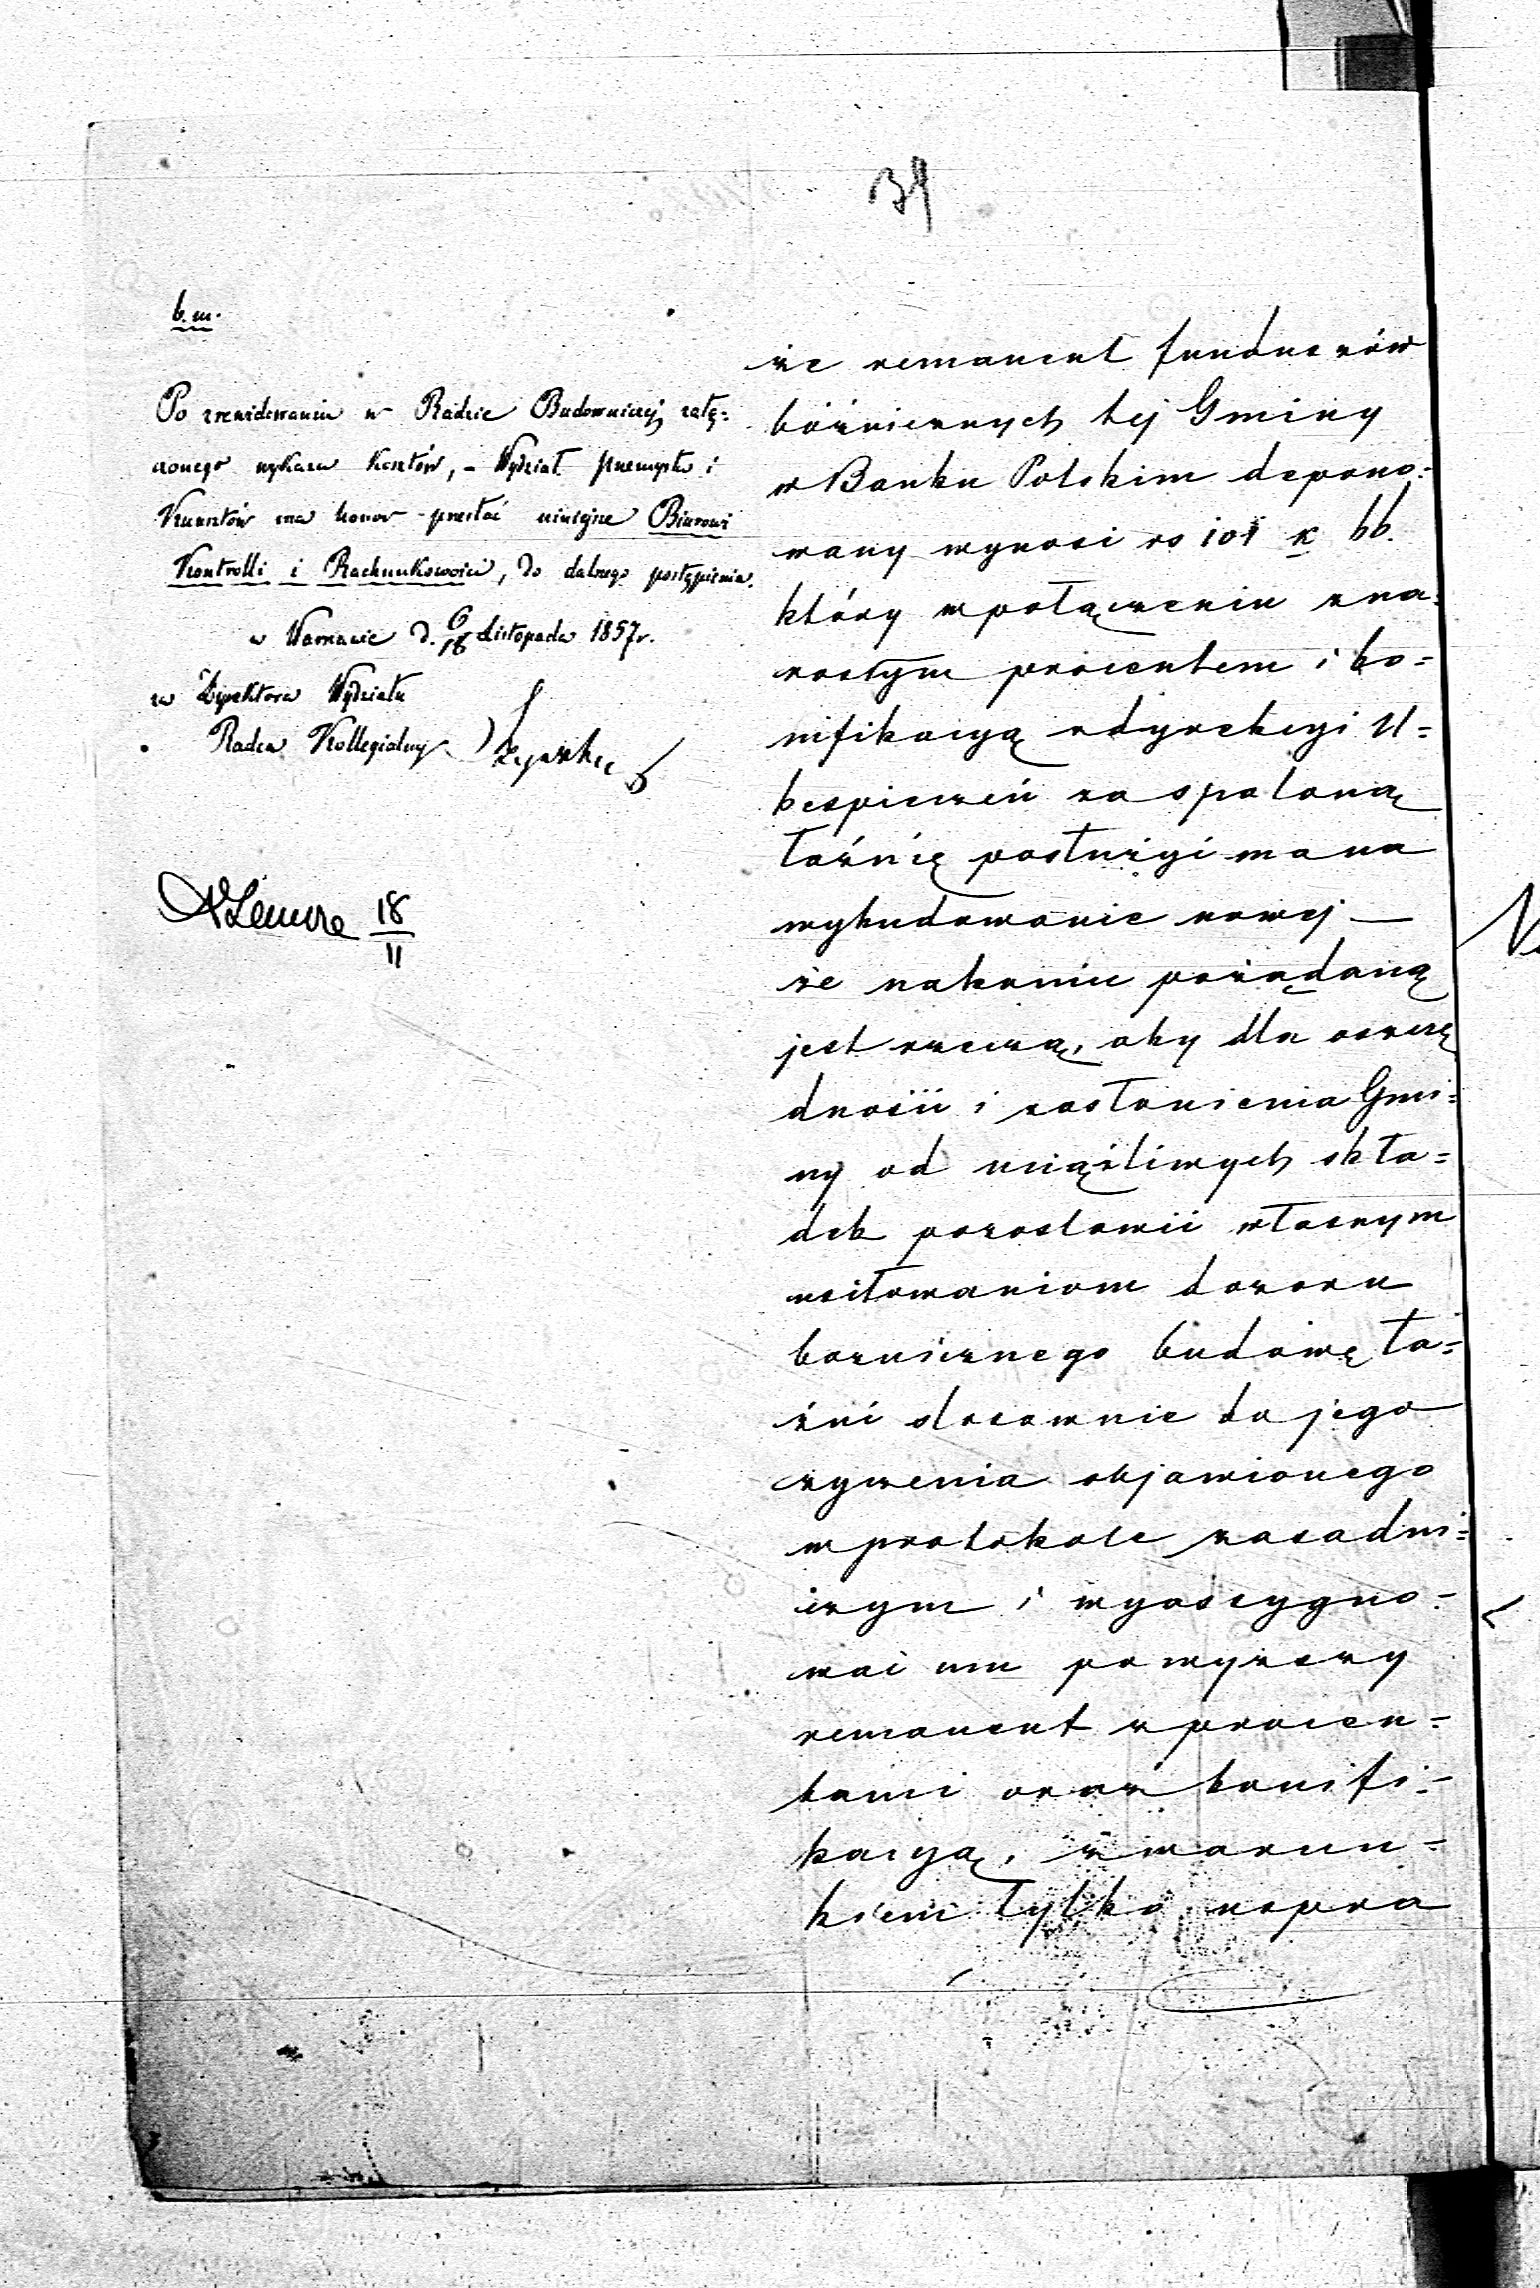 39
b.m.
Po zrewidowaniu w Radzie Budowniczéj załą=
czonego wykazu kosztów, – Wydział przemysłu i
Kunsztów ma honor przesłać niniejsze Biurowi
Kontrolli i Rachunkowości, do dalszego postąpienia.
w Warszawie d. 6/18 Listopada 1857 r.
za Dyrektora Wydziału
Radca Kollegialny
18
11
że remanent funduszów
bóżniczych tej Gminy
w Banku Polskim depono=
wany wynosi rs 101 k 66.
który w połączeniu z na=
rosłym procentem i bo=
nifikacyą z dyrekcyi U=
bespieczeń za spaloną
łaźnię posłużyć ma na
wybudowanie nowej —
że nakoniec pożądaną
jest rzeczą, aby dla oszczę
dności i zasłonienia Gmi=
ny od uciążliwych skła=
dek pozostawić własnym
usiłowaniom dozoru
bożnicznego budowę ła=
źni stosownie do jego
życzenia objawionego
w protokole zasadni=
czym i wyassygno=
wać mu powyższy
remanent z procen=
tami oraz bonifi=
kacyą, z warun=
kiem tylko uspra